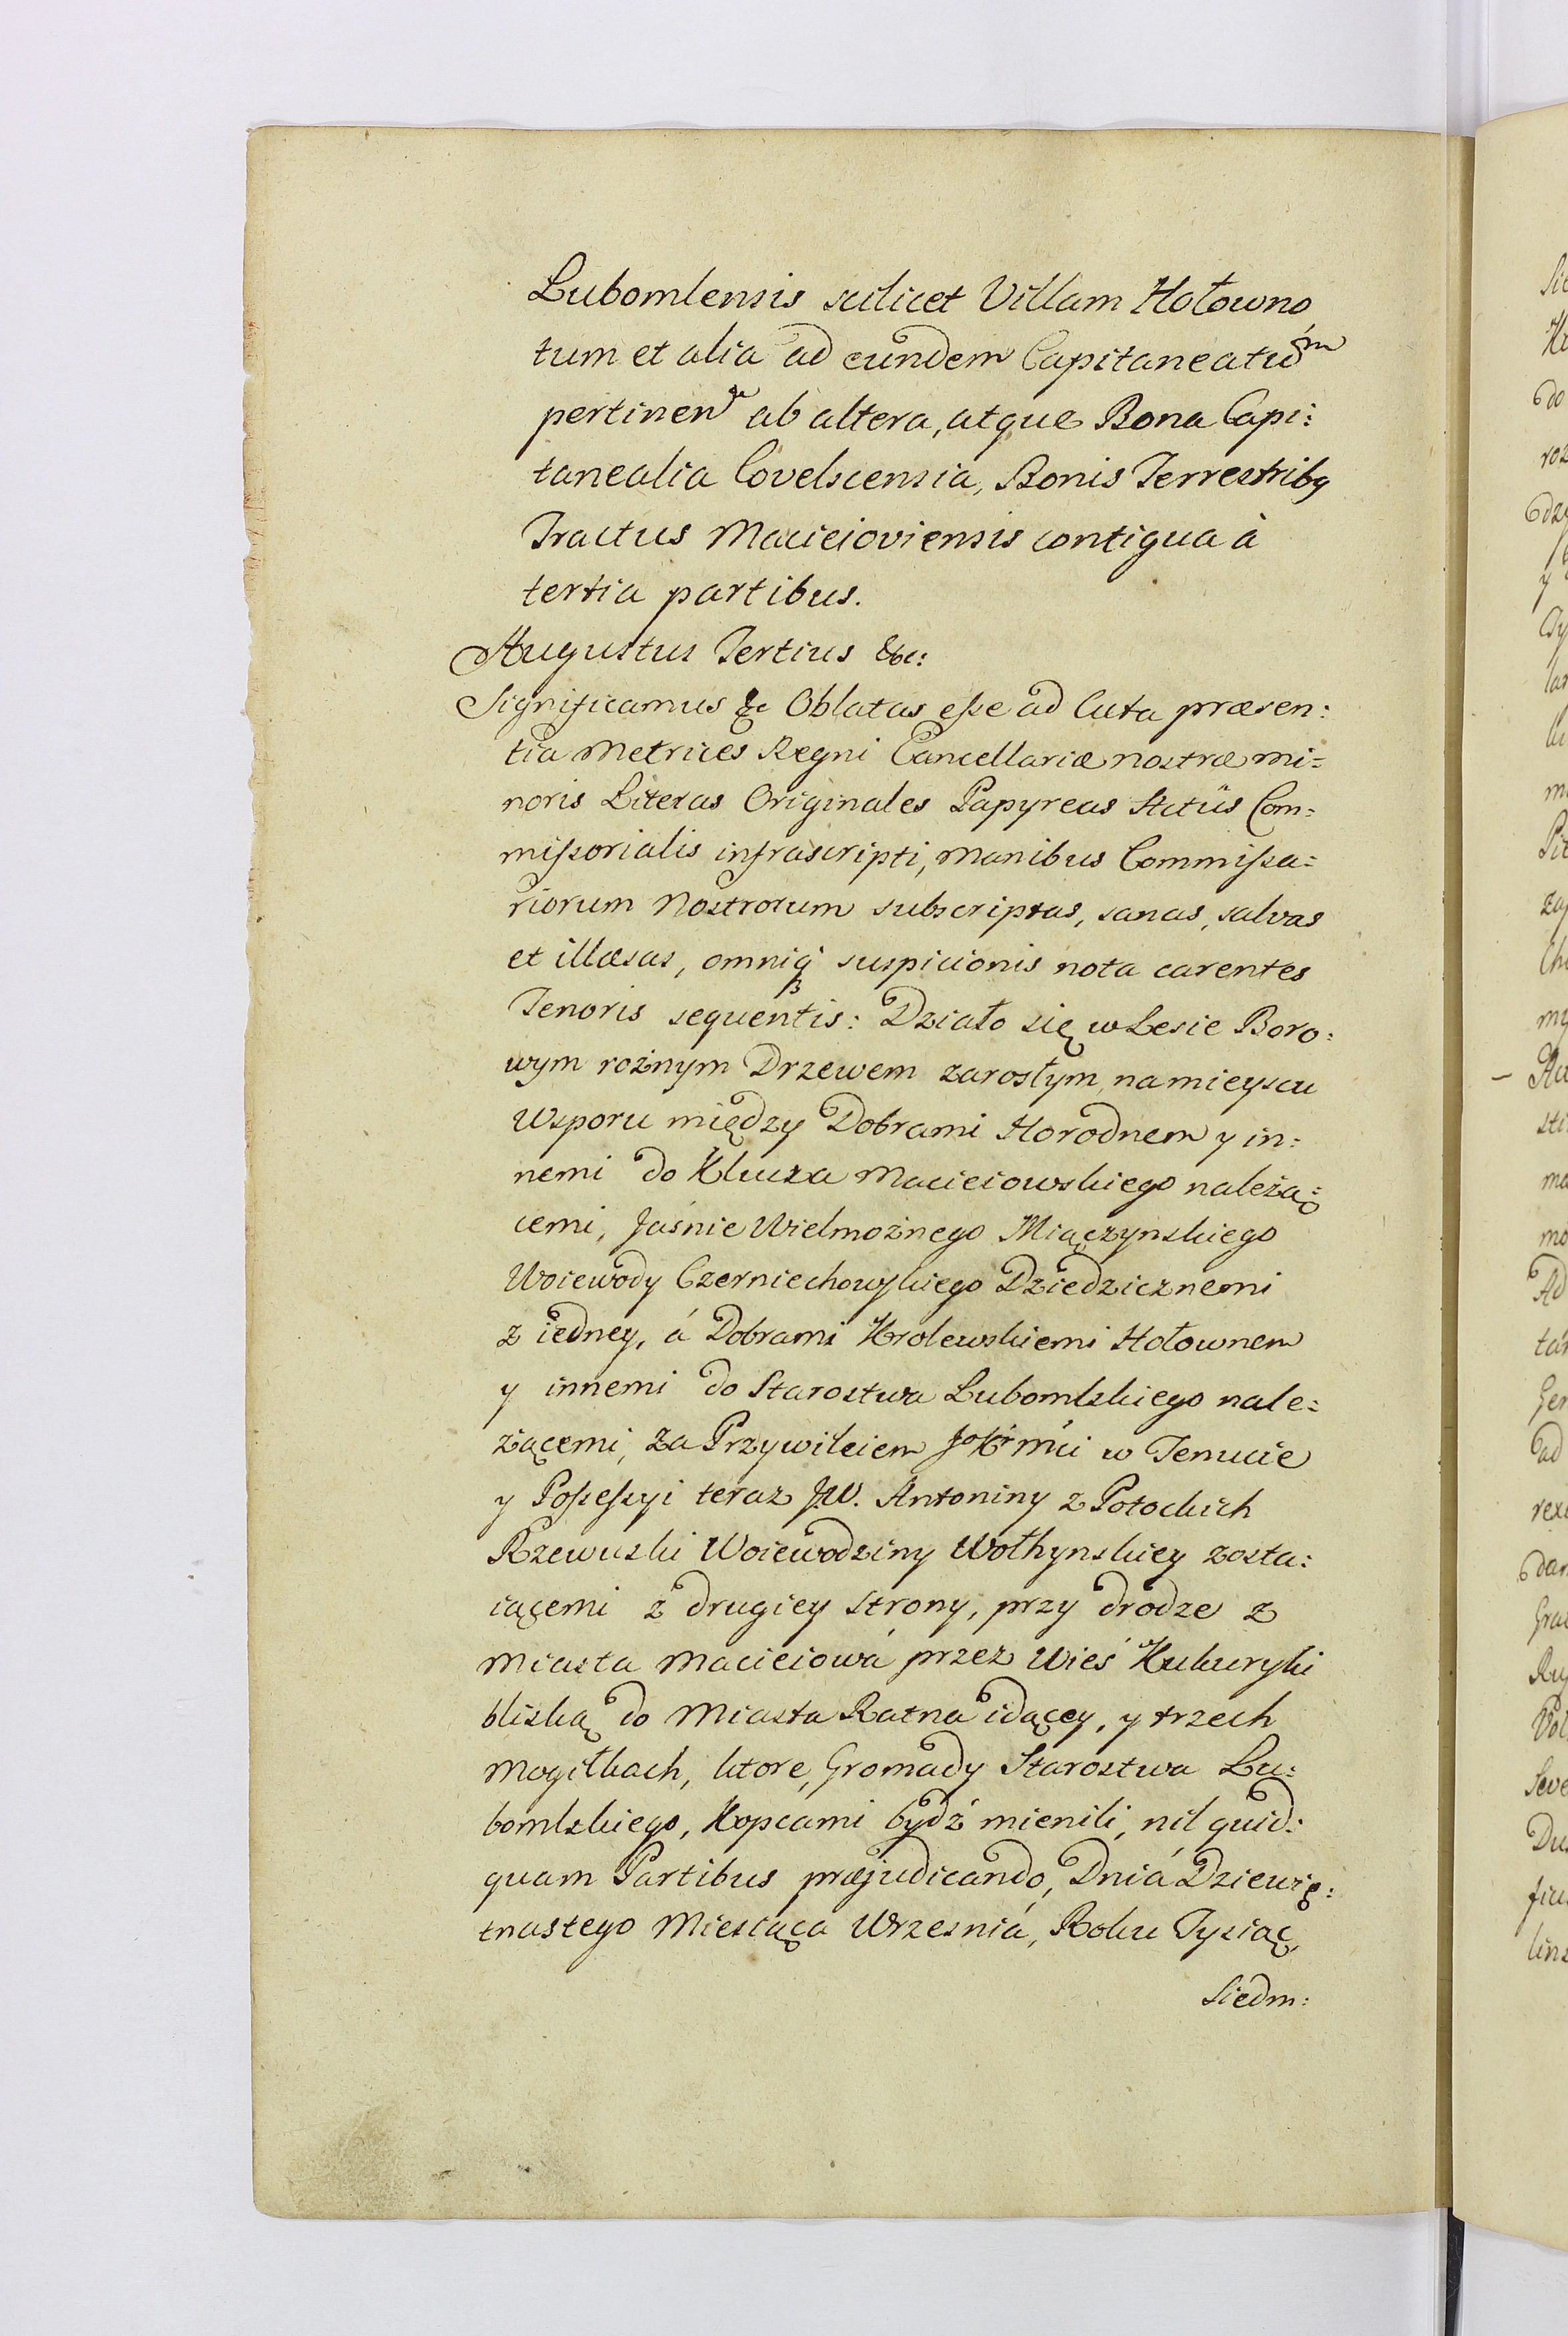 Lubomlensis scilicet Villam Hołowno
tum et alia ad eundem Capitaneatum
pertinen ab altera, atque Bona Capi:
tanealia Covelscensia, Bonis Terrestribq
Tractus Macieioviensis contigua à
tertia partibus.
Augustus Tertius &c:
Significamus &c Oblatas esse ad Acta præsen:
tia Metrices Regni Cancellariæ nostræ mi=
noris Literas Originales Papyreas Actûs Com=
missorialis infrascripti, manibus Commissa=
riorum Nostrorum subscriptas, sanas, salvas
et illæsas, omniq suspicionis nota carentes
Tenoris sequentis: Działo się w Lesie Boro:
wym rożnym Drzewem zarosłym na mieyscu
Wsporu między Dobrami Horodnem y in:
nemi do Klucza Macieiowskiego należą=
cemi, Jaśnie Wielmożnego Miączynskiego
Woiewody Czerniechowskiego Dziedzicznemi
z iedney, á Dobrami Krolewskiemi Hołownem
y innemi do Starostwa Lubomlskiego nale=
żącemi, za Przywileiem JoKr Mci w Tenucie
y Possessyi teraz JW. Antoniny z Potockich
Rzewuski Woiewodziny Wołhynskiey zosta:
iącemi z drugiey strony, przy drodze z
Miasta Macieiowá przez Wieś Kukuryki
bliską do Miasta Ratna idącey, y trzech
Mogiłkach, ktore, Gromady Starostwa Lu:
bomlskiego, Kopcami bydź mienili, nil quid:
quam Partibus præjudicando, Dniá Dziewię:
tnastego Miesiąca Wrzesniá, Roku Tysiąc,
Siedm: